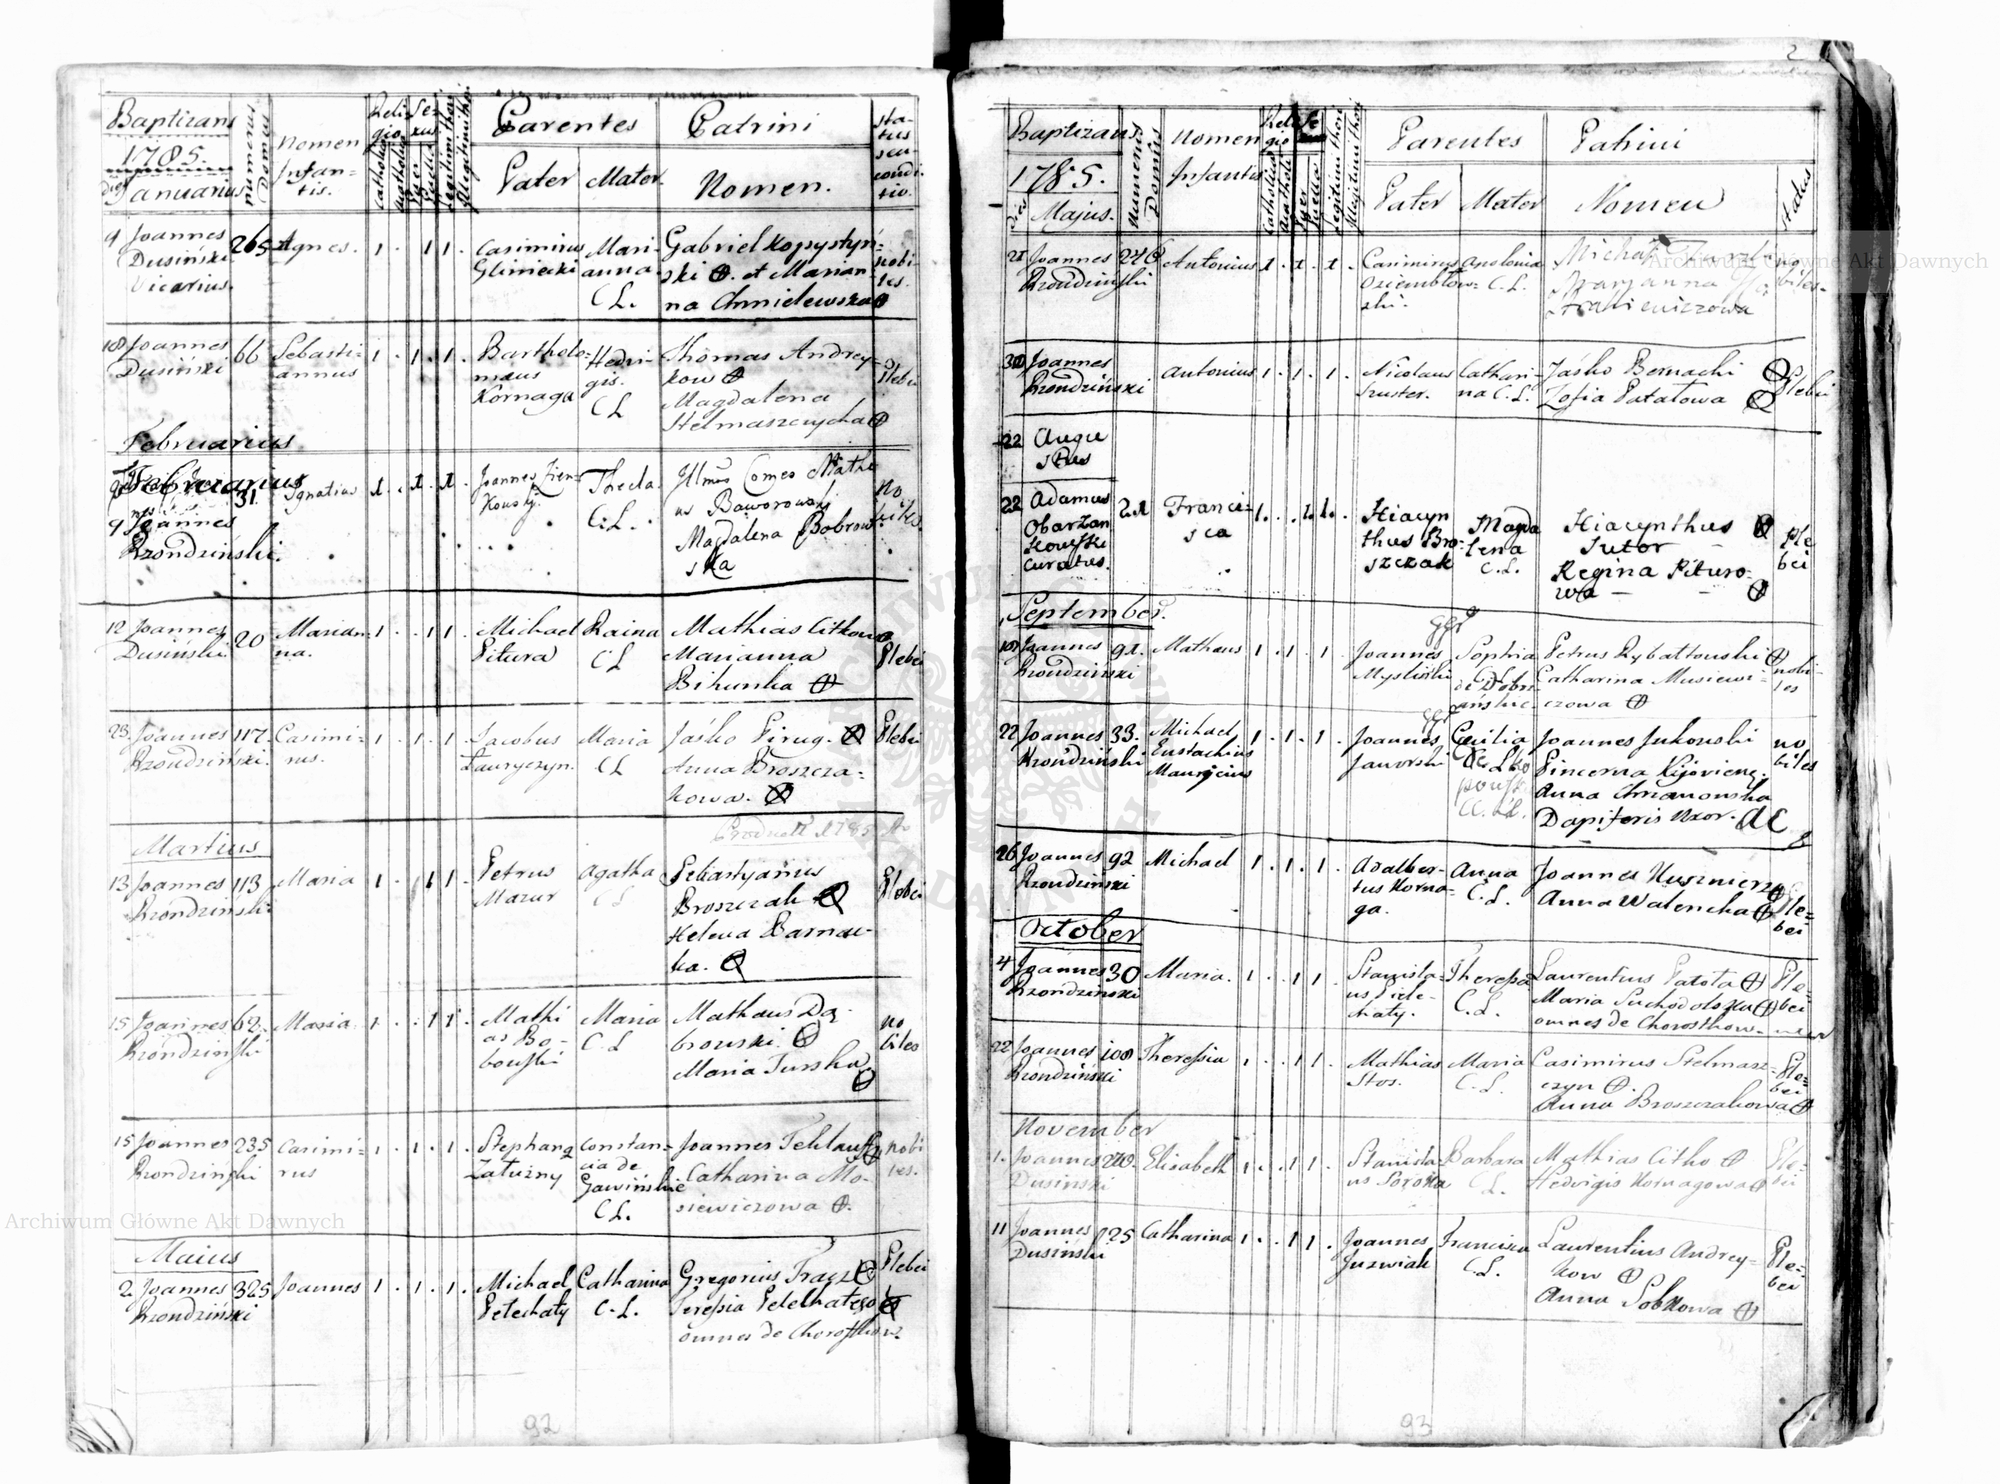 Baptizans
1785.
dies Januarius
numerus Domus
Nomen Infan=
tis.
Reli
gio
Se-
xus
Catholica
Puer
Puella
Legitimi thori
Illegitimi thori
Parentes
Pater
Mater
Patrini
Nomen.
sta-
tus
seu
condi-
tio.
9 Joannes
Dusiński
Vicarius.
265
Agnes.
1 . . 1 1 .
Casimirus
Gliniecki
Mari-
anna
C. L.
Gabriel Kopystyń-
ski et Marian-
na Chmielewska
nobi-
les.
18 Joannes
Dusiński
66
Sebasti-
annus
1 . 1 . 1 .
Bartholo-
maus
Kornaga
Hedvi-
gis.
C L
Thomas Andrey-
kow
Magdalena
Stelmaszczycha
Plebei
Februarius
Februarius
9 Joannes
Rzondziński.
31.
Ignatius
1 . . 1 . 1 .
Joannes Zien-
kowsky.
Thecla
C. L.
Illmus Comes Mathi
as Baworowski
Magdalena Bobrow
ska
No
biles
12 Joannes
Dusiński
20
Marian-
na.
1 . . 1 1 .
Michael
Pitura
Raina
C L
Mathias Citkow
Marianna
Bihunka
Plebei
23. Joannes
Rzondziński.
117.
Casimi-
rus.
1 . 1 . 1
Jacobus
Lauryczyn.
Maria
C L
Jaśko Pirug.
Anna Broszcza=
kowa.
Plebei
Martius
13 Joannes
Rzondziński
113
Maria
1 . 1 1 .
Petrus
Mazur
Agatha
C L
Sebastyanus
Broszczak
Helena Barnau-
ka.
Plebei
15 Joannes
Rzondzinski
62.
Maria.
1 . . 1 1 .
Mathi
as Bo-
bouski
Maria
C. L
Mathaus Dą-
browski.
Maria Turska
no
biles
15 Joannes
Rzondzinski
235
Casimi-
rus
1 . 1 . 1 .
Stephang
Załuzny
Constan-
cia de
Gawińskie
C L.
Joannes
Catharina Mo-
siewiczowa
nobi
les.
Maius
2. Joannes
Rzondziński
325
Joannes
1 . . 1 . 1 .
Michael
Petechaty
Catharina
C. L.
Gregorius Tracz
Teressia Pelehatego
omnes de Chorostkow.
Plebei
92
2
Baptizans
1785.
dies
Majus.
Numerus
Domus
Nomen
Infantis
Reli
gio
Catholica
Acatholica
Puer
Puella
Legitimi thori
Illegitimi thori
Parentes
Pater
Mater
Patrini
Nomen
status
21 Joannes
Rzondzinski
246
Antonius
1 . 1 . 1 .
Casimirus
Dziembow=
ski.
Apolonia
C. L.
Marjanna
no-
biles.
30 Joannes
Rzondziński
Antonius
1 . 1 . 1 .
Nicolaus
Szuster.
Cathari-
na C. L.
Jaśko Bernacki
Zofia Patałowa
Plebei
22 Augu
stus
22 Adamus
Obarzan
kowski
Curatus.
21
Franci-
sca
1 . . 1 . 1 .
Hiacyn
thus Bro-
szczak
Magda
lena
C. L.
Hiacynthus
Sutor
Regina Pituro-
wa
Ple
bei
September.
18 Joannes
Rzondzinski
91.
Matheus
1 . 1 . 1
Joannes
Mysliński
Sophia
de Dobrz-
ańskie
Petrus Rybałtowski
Catharina Musiewi-
czowa
nobi-
les
22 Joannes
Rzondziński
33.
Michael
Eustachius
Mauricius
1 . 1 . 1 .
Joannes
Jaworski
Cecilia
C. L.
Joannes Jukowski
Pincerna Kijoviens.
Anna Chrzanowska
Dapiferis Uxor. AC
no
biles
26 Joannes
Rzondziński
92
Michael
1 . 1 . 1
Adalber-
tus Korna-
ga.
Anna
C. L.
Joannes Kusznierz
Anna Walencka
Ple=
bei
October
4 Joannes
Rzondzinski
30
Maria.
1 . . 1 1 .
Stanisla-
us Piele-
chaty.
Theressa
C. L.
Laurentius Patota
Maria Suchodolska
omnes de Chorostkow.
Ple-
bei
22 Joannes
Rzondziński
108
Theressia
1 . . 1 1 .
Mathias
Stos.
Maria
C. L.
Casimirus Stelmasz-
czyn
Anna Broszczakowa
Ple=
bei
November
1. Joannes
Dusinski
270.
Elisabeth
1 . . 1 1 .
Stanisla-
us Soroka
Barbara
C L.
Mathias Citko
Hedvigis Kornagowa
Ple-
bei
11 Joannes
Dusiński
225
Catharina
1 . . 1 1 .
Joannes
Juzwiak
Francisca
C. L.
Laurentius Andrey=
kow
Anna Sobkowa
Ple=
bei
93
Archiwum Główne Akt Dawnych
Archiwum Główne Akt Dawnych